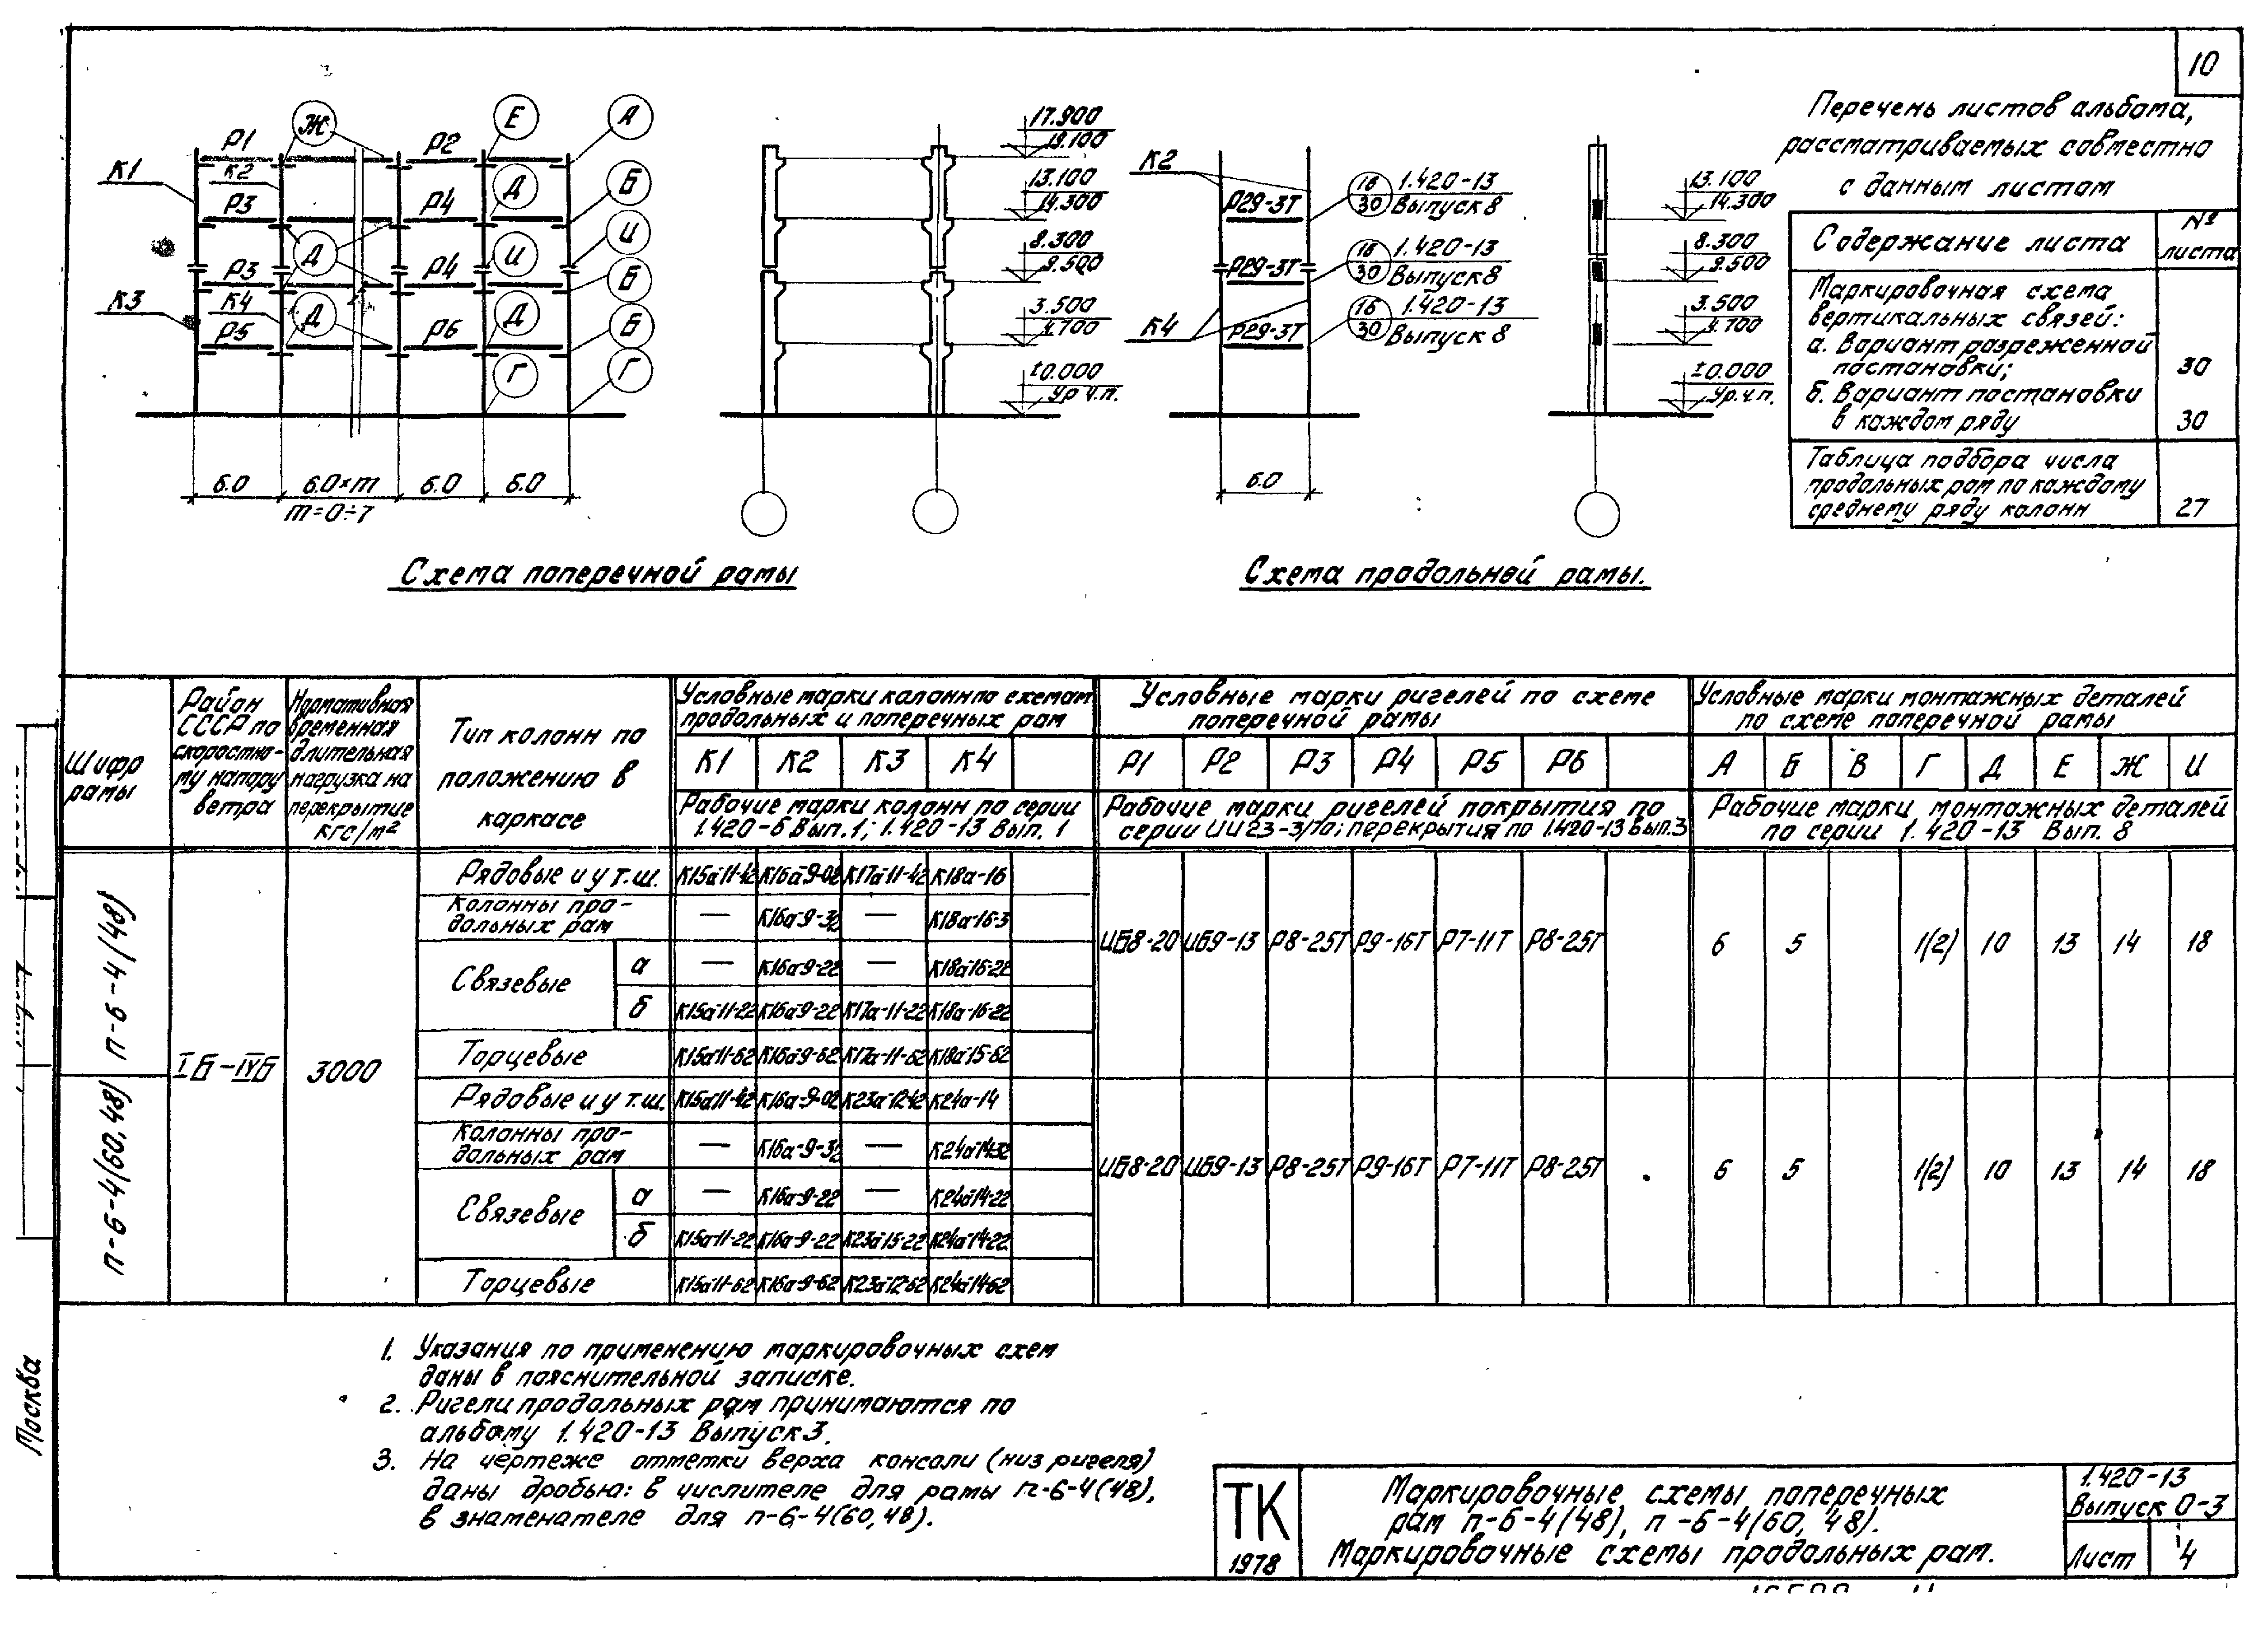 10
Ж
Е
А
Р1
Р2
К1
К2
Д
Б
Р3
Р4
Д
И
И
Р3
Р4
Б
К3
К4
Д
Д
Б
Р5
Р6
Г
Г
6.0
6.0×m
6.0
6.0
m=0÷7
17.900
19.100
13.100
14.300
8.300
9.500
3.500
4.700
±0.000
Ур.ч.п.
Схема поперечной рамы
К2
Р29-3Т
16
30
1.420-13
Выпуск 8
Р29-3Т
16
30
1.420-13
Выпуск 8
К4
Р29-3Т
16
30
1.420-13
Выпуск 8
6.0
13.100
14.300
8.300
9.500
3.500
4.700
±0.000
Ур.ч.п.
Схема продольной рамы.
Перечень листов альбома,
рассматриваемых совместно
с данным листом
Содержание листа
№
листа
Маркировочная схема
вертикальных связей:
а. Вариант разреженной
постановки;
30
б. Вариант постановки
в каждом ряду
30
Таблица подбора числа
продольных рам по каждому
среднему ряду колонн
27
Шифр
рамы
Район
СССР по
скоростно-
му напору
ветра
Нормативная
временная
длительная
нагрузка на
перекрытие
кгс/м²
Тип колонн по
положению в
каркасе
Условные марки колонн по схемам
продольных и поперечных рам
К1 К2 К3 К4
Рабочие марки колонн по серии
1.420-6 Вып.1; 1.420-13 Вып. 1
Условные марки ригелей по схеме
поперечной рамы
Р1 Р2 Р3 Р4 Р5 Р6
Рабочие марки ригелей покрытия по
серии ИИ23-3/70; перекрытия по 1.420-13 Вып.3
Условные марки монтажных деталей
по схеме поперечной рамы
А Б В Г Д Е Ж И
Рабочие марки монтажных деталей
по серии 1.420-13 Вып. 8
п-6-4(48)
IБ-IVБ
3000
Рядовые и у т.ш. К15а-11-42 К16а-9-02 К17а-11-42 К18а-16
Колонны про-
дольных рам
— К16а-9-32 — К18а-16-3
Связевые
а — К16а-9-22 — К18а-16-22
б К15а-11-22 К16а-9-22 К17а-11-22 К18а-16-22
Торцевые К15а-11-62 К16а-9-62 К17а-11-62 К18а-15-62
ИБ8-20 ИБ9-13 Р8-25Т Р9-16Т Р7-11Т Р8-25Т
6 5 1(2) 10 13 14 18
п-6-4(60,48)
Рядовые и у т.ш. К15а-11-42 К16а-9-02 К23а-12-42 К24а-14
Колонны про-
дольных рам
— К16а-9-32 — К24а-14-32
Связевые
а — К16а-9-22 — К24а-14-22
б К15а-11-22 К16а-9-22 К23а-15-22 К24а-14-22
Торцевые К15а-11-62 К16а-9-62 К23а-12-62 К24а-14-62
ИБ8-20 ИБ9-13 Р8-25Т Р9-16Т Р7-11Т Р8-25Т
6 5 1(2) 10 13 14 18
1. Указания по применению маркировочных схем
даны в пояснительной записке.
2. Ригели продольных рам принимаются по
альбому 1.420-13 Выпуск 3.
3. На чертеже отметки верха консоли (низ ригеля)
даны дробью: в числителе для рамы п-6-4(48),
в знаменателе для п-6-4(60,48).
Москва
ТК
1978
Маркировочные схемы поперечных
рам п-6-4(48), п-6-4(60, 48).
Маркировочные схемы продольных рам.
1.420-13
Выпуск 0-3
Лист
4